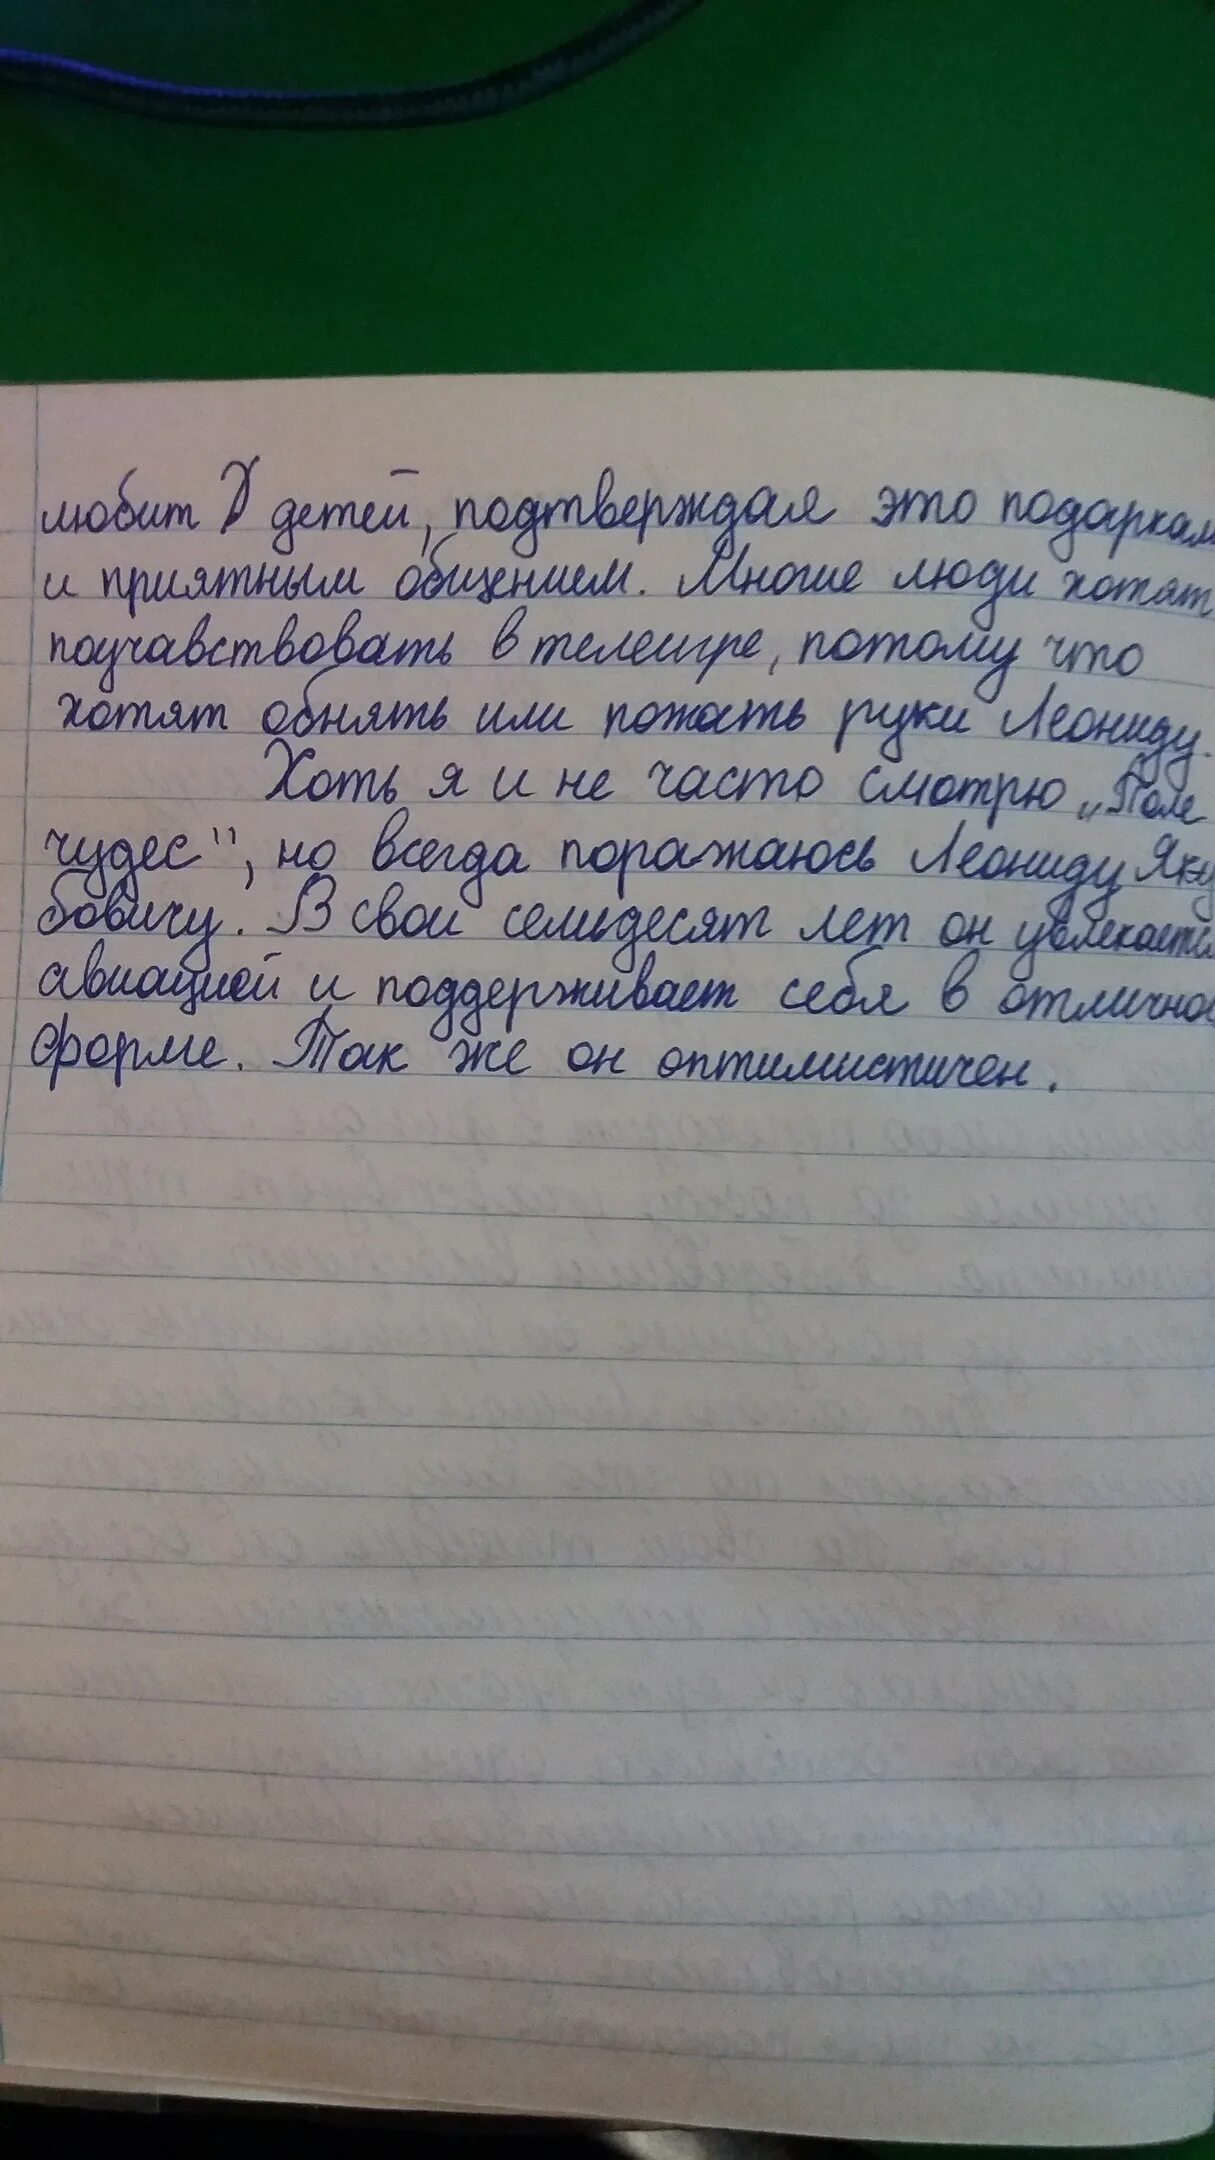 любит детей, подтверждая это подаркам
и приятным общением. Многие люди хотят
поучавствовать в телеигре, потому что
хотят обнять или пожать руки Леониду.
Хоть я и не часто смотрю „Поле
чудес", но всегда поражаюсь Леониду Яку
бовичу. В свои семьдесят лет он увлекается
авиацией и поддерживает себя в отлично
форме. Так же он оптимистичен.